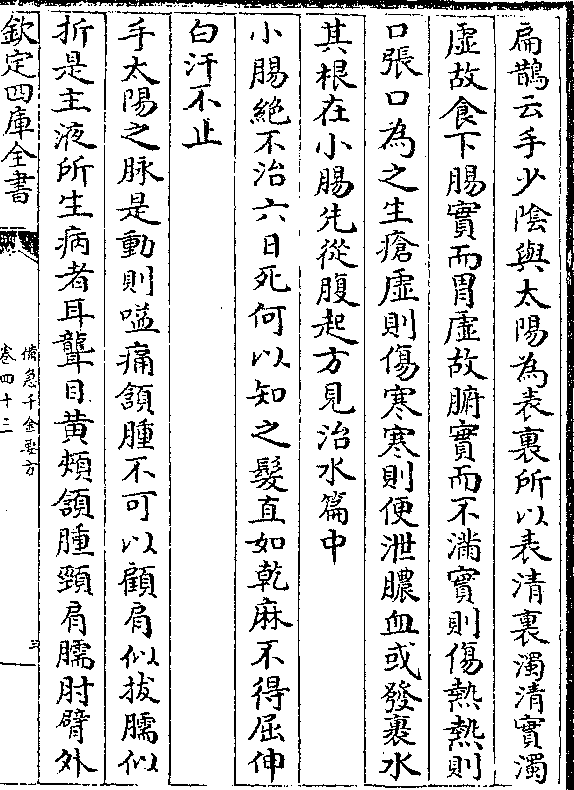 扁鵲云手少陰與太陽為表裏所以表清裏濁清實濁
虛故食下腸實而胃虛故腑實而不滿實則傷熱熱則
口張口為之生瘡虛則傷寒寒則便泄膿血或發裏水
其根在小腸先從腹起方見治水篇中
小腸絶不治六日死何以知之髮直如乾麻不得屈伸
白汗不止
手太陽之脉是動則嗌痛頷腫不可以顧肩似拔臑似
折是主液所生病者耳聾目黄頰頷腫頸肩臑肘臂外
欽定四庫全書
備急千金要方
卷四十三
三